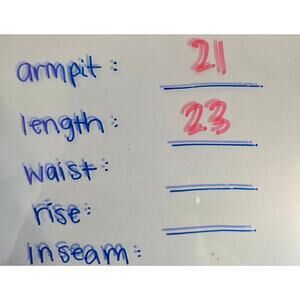 armpit: 21
length: 23
waist:
rise:
inseam: